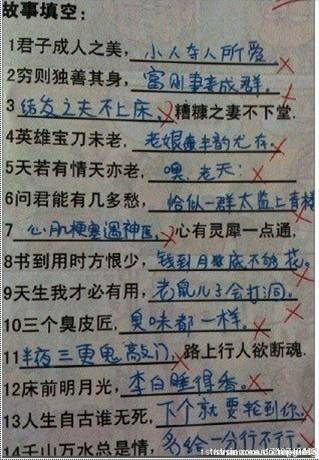 故事填空:
1君子成人之美，小人夺人所爱。
2穷则独善其身，富则妻妾成群。
3 结发之夫不上床，糟糠之妻不下堂.
4英雄宝刀未老，老娘 丰韵尤存。
5天若有情天亦老，噢，老天!
6问君能有几多愁，恰似一群太监上青楼
7 心肌梗塞遇神医，心有灵犀一点通，
8书到用时方恨少，钱到月底不够花。
9天生我才必有用，老鼠儿子会打洞。
10三个臭皮匠，臭味都一样。
11半夜三更鬼敲门，路上行人欲断魂.
12床前明月光，李白睡得香。
13人生自古谁无死，下个就要轮到你。
14千山万水总是情，多给一分行不行。